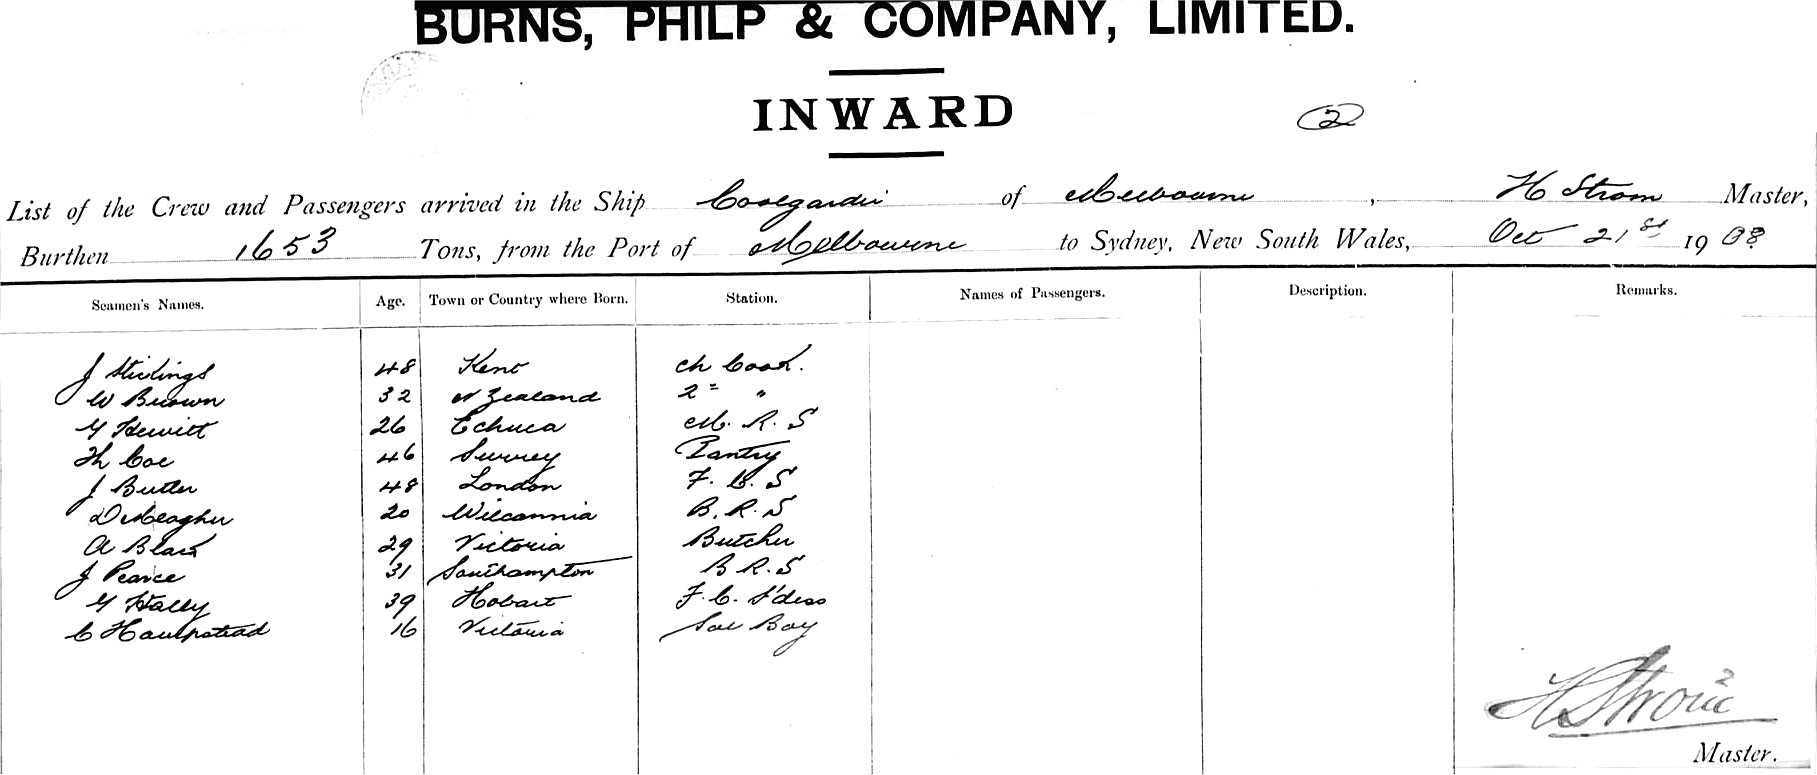 BURNS, PHILP & COMPANY, LIMITED.
INWARD
2
List of the Crew and Passengers arrived in the Ship Coolgardie of Melbourne, H Strom Master,
Burthen 1653 Tons, from the Port of Melbourne to Sydney, New South Wales, Oct 21st 1908
Seamen's Names. Age. Town or Country where Born. Station. Names of Passengers. Description. Remarks.
J 48 Kent Ch Cook.
W Brown 32 N Zealand 2 = "
G Hewitt 26 Echuca M. R. S
Th Coe 46 Surrey Pantry
J Butler 48 London F. C. S
D Meagher 20 Wilcannia B. R. S
A Black 29 Victoria Butcher
J Pearce 31 Southampton B R. S
G Hally 39 Hobart F. C. S'dess
C 16 Victoria Boy
H Strom
2
Master.